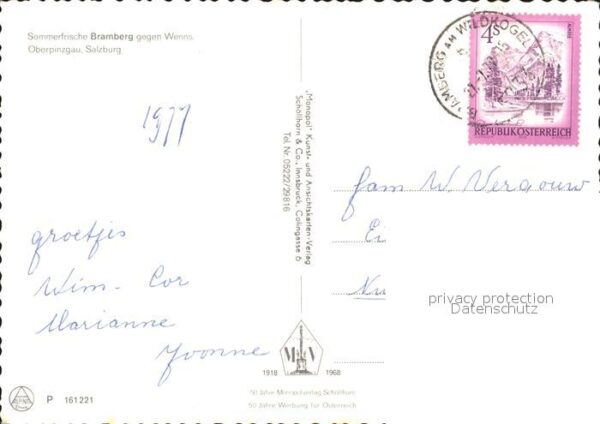 Sommerfrische Bramberg gegen Wenns.
Oberpinzgau, Salzburg
1977
groetjes
Wim - Cor
Marianne
Yvonne
"Monopol" Kunst- und Ansichtskarten-Verlag
Schöllhorn & Co., Innsbruck, Colingasse 6
Tel. Nr. 05222/29816
AMBERG AM WILDKOGEL
4S
REPUBLIK ÖSTERREICH
fam W. Vergouw
Ei
privacy protection
Datenschutz
M V
1918 1968
50 Jahre Monopolverlag Schöllhorn
50 Jahre Werbung für Österreich
P 161221